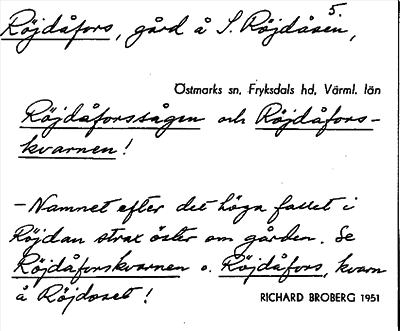 Röjdåfors, gård å S. Röjdåsen 5,
Östmarks sn, Fryksdals hd, Värml. län
Röjdåforssågen och Röjdåfors-
kvarnen!
– Namnet efter det höga fallet i
Röjdan strax öster om gården. Se
Röjdåforskvarnen o. Röjdåfors, kvarn
å Röjdoset!
RICHARD BROBERG 1951